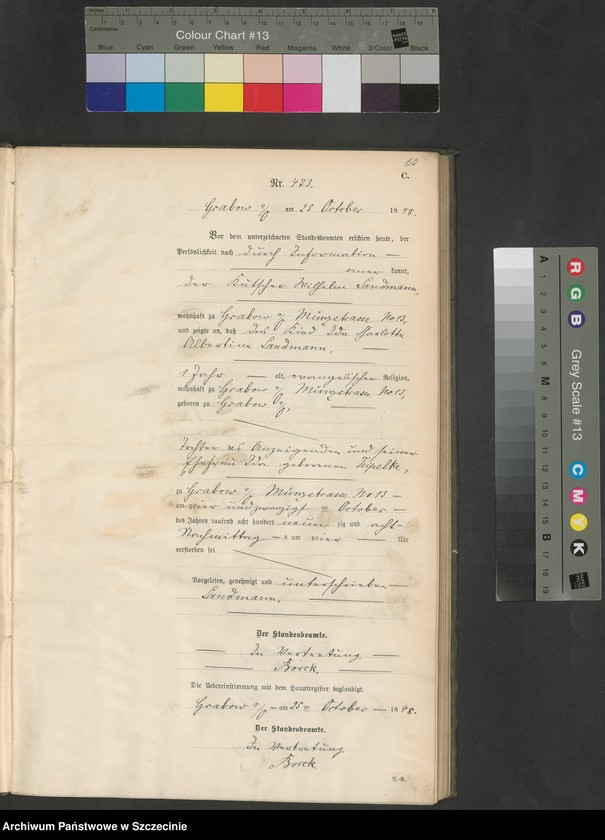 Inches
Centimetres
Colour Chart #13
Blue Cyan Green Yellow Red Magenta White 3/Color Black
60
C.
Nr. 473.
Grabow a/O am 25 October 1898.
Vor dem unterzeichneten Standesbeamten erschien heute, der
Persönlichkeit nach durch Information —
kannt,
der Kutscher Wilhelm Landmann,
wohnhaft zu Grabow a/O Münzstrasse No 13,
und zeigte an, daß das Kind Ida Charlotte
Albertine Landmann,
1 Jahr — alt, evangelischer Religion,
wohnhaft zu Grabow a/O Münzstrasse No 13,
geboren zu Grabow a/O,
Tochter des Anzeigenden und seiner
Ehefrau Ida geborenen
zu Grabow a/O Münzstrasse No 13 —
am vier und zwanzigsten October —
des Jahres tausend acht hundert neunzig und acht
Nachmittag — s um vier — Uhr
verstorben sei.
Vorgelesen, genehmigt und unterschrieben —
Landmann.
Der Standesbeamte.
In Vertretung
Borck.
Die Uebereinstimmung mit dem Hauptregister beglaubigt.
Grabow a/O — am 25 ten October — 1898.
Der Standesbeamte.
In Vertretung
Borck.
A 1 2 3 4 5 6 M 8 9 10 11 12 13 14 15 B 17 18 19
R G B
Grey Scale #13
C M Y K
Archiwum Państwowe w Szczecinie